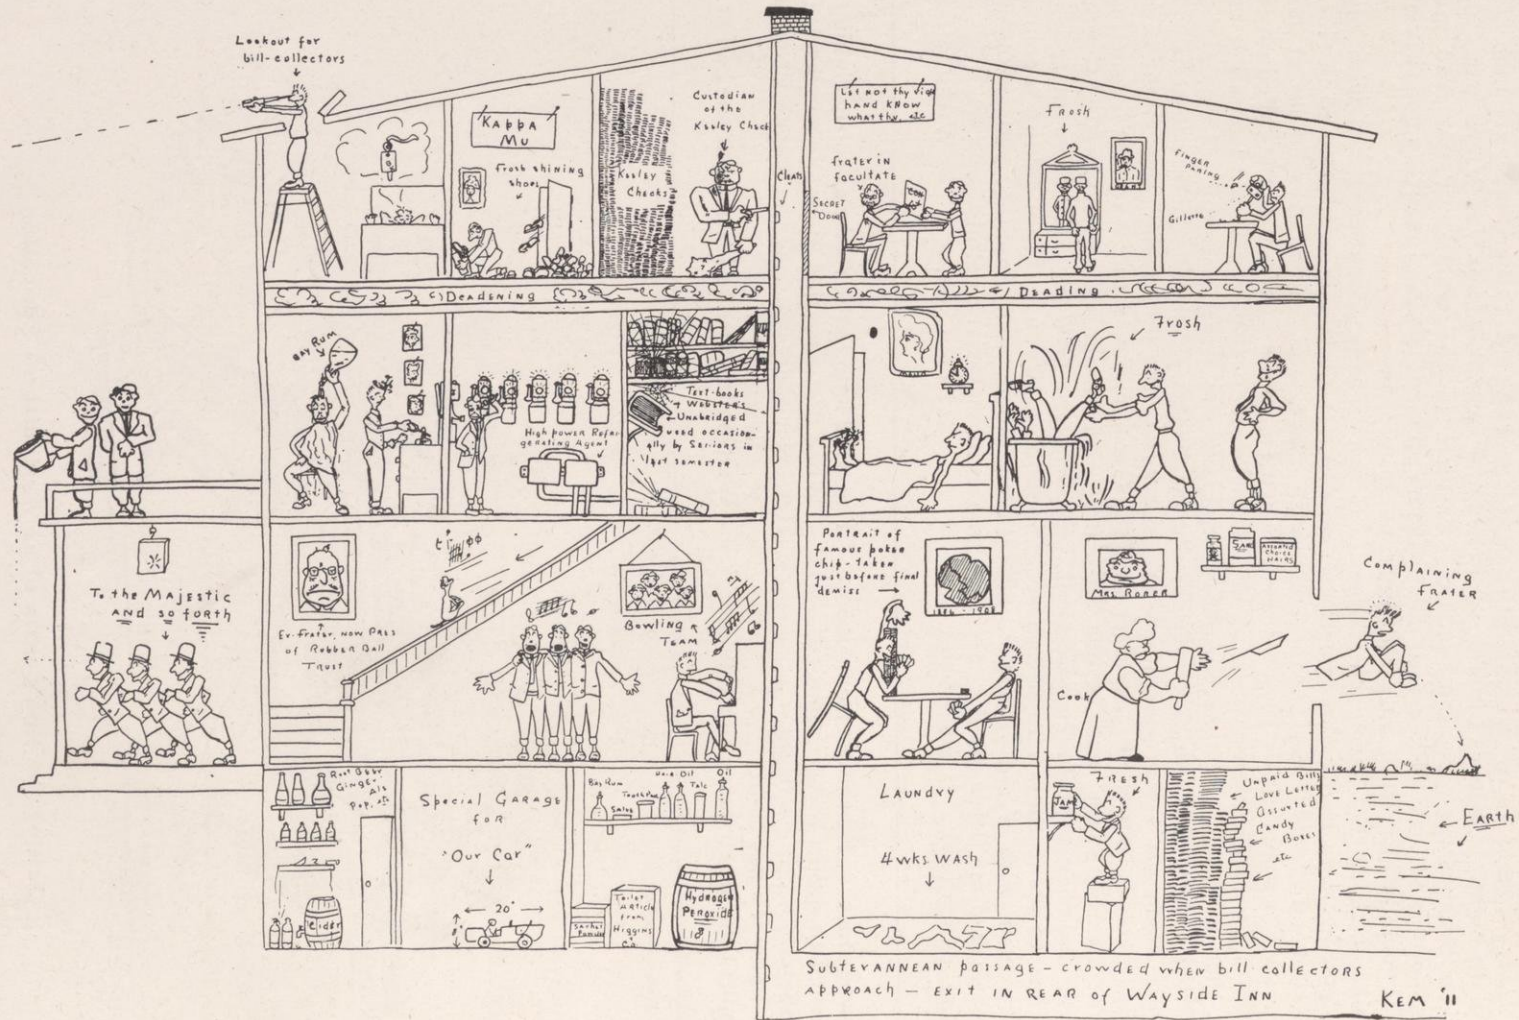 Lookout for
bill-collectors
Kappa
Mu
Frosh shining
shoes
Keeley
Checks
Custodian
of the
Keeley Check
Cleats
Let not thy rig
hand know
what thy, etc
frater in
facultate
Secret
Door
Con
Frosh
Finger
paring
Gillette
Deadening
Deading
Bay Rum
High power Refri-
gerating Agent
Text-books
Webster's
Unabridged
used occasion-
ally by Seniors in
last semester
Frosh
To the Majestic
and so forth
Ex-frater, now Pres
of Rubber Ball
Trust
Bowling
Team
Portrait of
famous poker
chip - taken
just before final
demiss
1886 - 1908
Mrs Rorer
Jam
Assorted
Choice
Hairs
Cook
Complaining
frater
Root Beer
Ginger-
Ale
Pop, etc
Cider
Special Garage
for
"Our Car"
20"
8"
Bay Rum
Hair Oil
Oil
Talc
Salve
Sachet
Powder
Toilet
Article
from
Higgins
& Co
Hydrogen
Peroxide
Laundry
4 wks wash
Fresh
Jam
Unpaid Bills
Love Letter
Assorted
Candy
Boxes
etc
Earth
Subterannean passage - crowded when bill collectors
approach - exit in rear of Wayside Inn
Kem '11